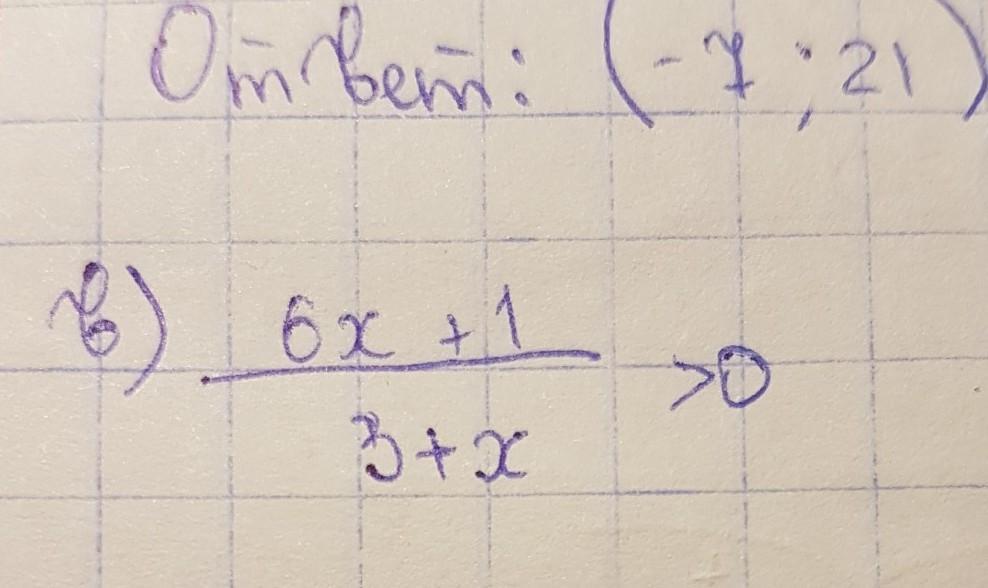 Ответ: (-7; 21)
в) \frac{6x+1}{3+x} >0